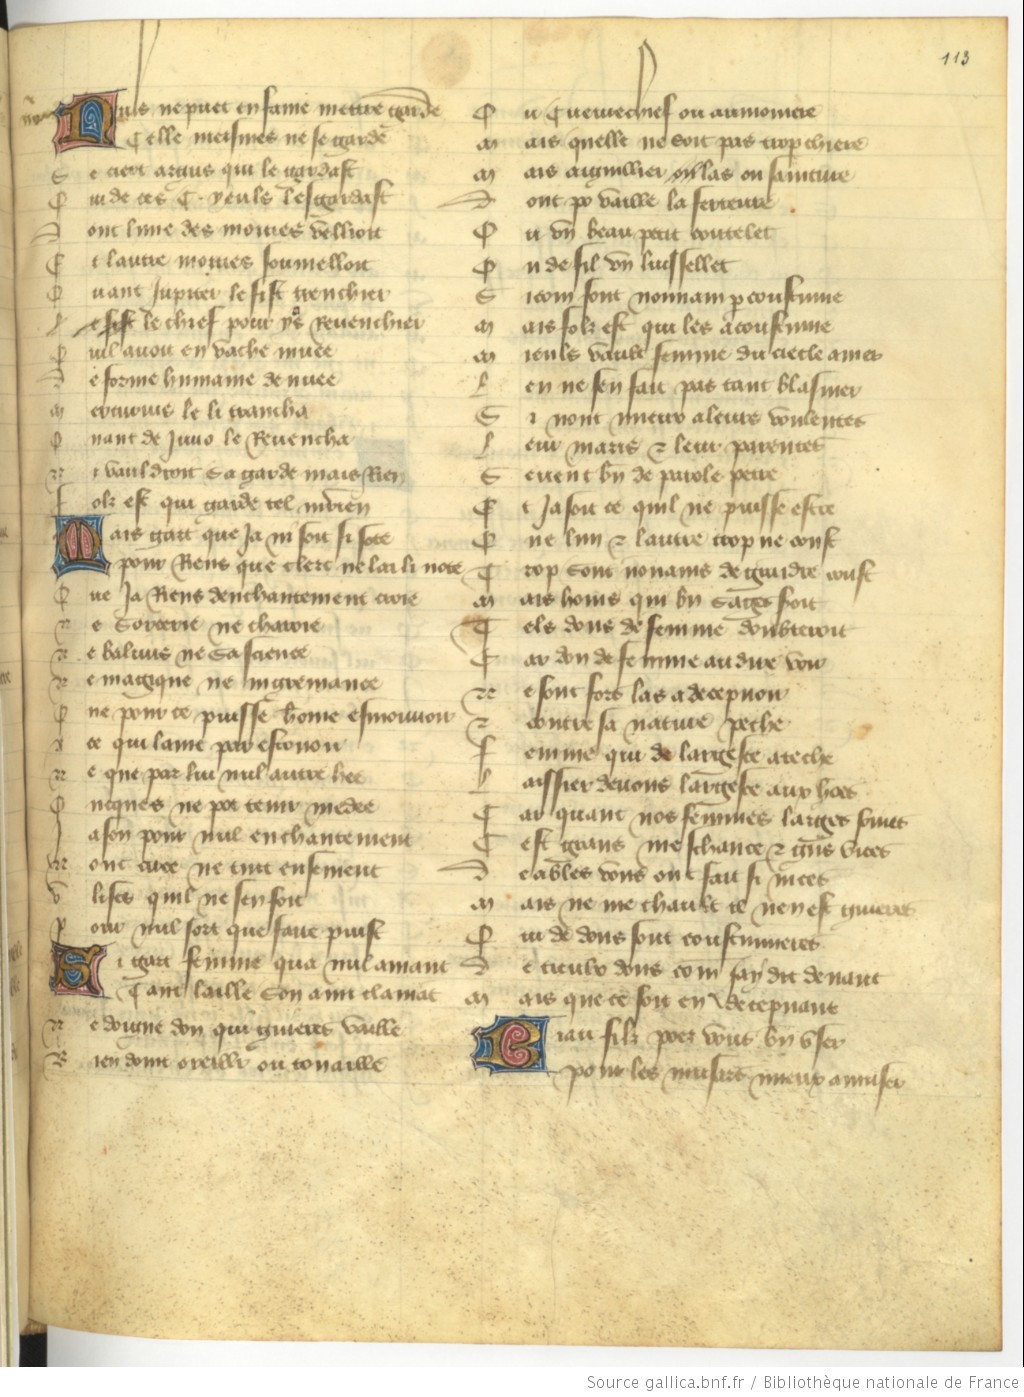 113
Nulz ne puet en fame mettre garde
Celle meismes ne se garde
Se ciert argus qui le gardast
Qui de ces C. yeulz lesgardast
Dont lune des moities veilloit
Et lautre moities sommeilloit
Quant Jupiter le fist trenchier
le chief pour yo Revenchier
Quil avoit en vache muee
De forme humaine denuee
Mercurius le li trancha
Quant de Juno le Revencha
Ni vauldroit sa garde mais Rien
Folz est qui garde tel merien
Mais gart que Ja ni soit si sote
pour Riens que clerc ne lai li note
Que Ja Riens denchantement croie
Ne sorcerie ne charoie
Ne balenus ne sa science
Ne magique ne nigremance
Que pour ce puisse home esmouvoir
A ce qui laint par estovoir
Ne que par lui nul autre hee
Onques ne pot tenir medee
Jason pour nul enchantement
Nont circe ne tint ensement
Vlixes quil ne sen foit
Pour nul sort que faire puist
Si gart femme qua nul amant
Tant laille son ami clamat
Ne doigne don qui guieres vaille
Bien doint oreillir ou touaille
Ou Cuevrechief ou aumoniere
Mais quelle ne soit pas trop chiere
Mais aiguillier ou las ou sainture
Dont po vaille la ferreure
Ou vn beau petit coutelet
Ou de fil vn luissellet
Si com font nonnain p coustume
Mais folz est qui les acoustume
Mieulz vault femme du siecle amer
Len ne sen fait pas tant blasmer
Si vont mieux a leurs voulentes
Leur maris z leur parentes
Sevent bn de parole pestre
Et Ja soit ce quil ne puisse estre
Que lun z lautre trop ne coust
Trop sont nonains de graindre coust
Mais homs qui bn sages soit
Tels dons de femme doubteroit
Car don de femme au dire voir
Ne sont fors las a decepvoir
z contre sa nature peche
Femme qui de largesce a teche
Laissier devons largesce aux hoes
Car quant nos femmes larges somes
Cest grans meschance z grans vices
Deables vous ont fait si nices
Mais ne me chault il nen est guieres
Qui de dons soit coustumieres
De ticulx dons com Jay dit devant
Mais que ce soit en decepvant
Biau filz poez vous bn vser
pour les musars mieux amuser
Source gallica.bnf.fr / Bibliothèque nationale de France